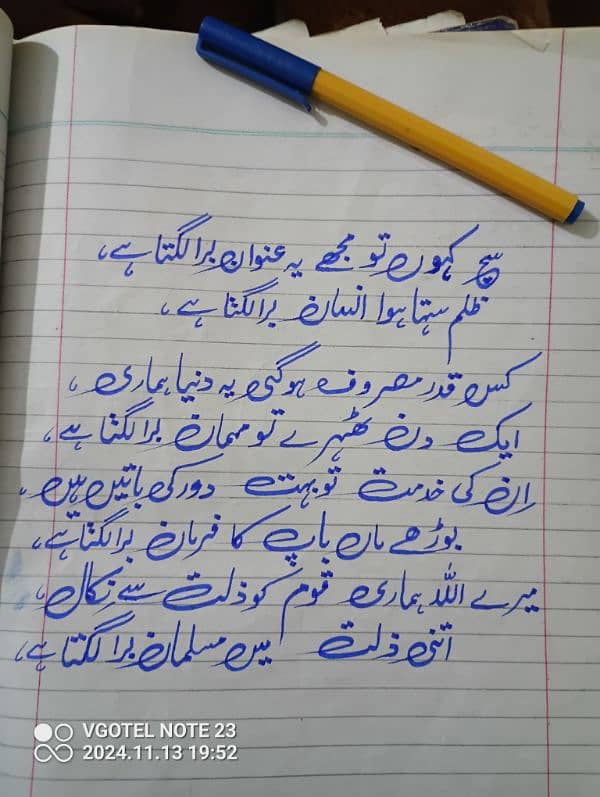 سچ کہوں تو مجھے یہ عنوان برا لگتا ہے،
ظلم سہتا ہوا انسان برا لگتا ہے،
کس قدر مصروف ہوگئی یہ دنیا ہماری،
ایک دن ٹھہرے تو مہمان برا لگتا ہے،
اِن کی خدمت تو بہت دور کی باتیں ہیں،
بوڑھے ماں باپ کا فرمان برا لگتا ہے،
میرے اللہ ہماری قوم کو ذلت سے نِکال،
اتنی ذلت میں مسلمان برا لگتا ہے،
VGOTEL NOTE 23
2024.11.13 19:52